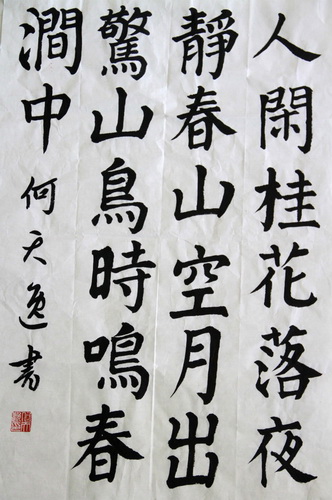 人閑桂花落夜
靜春山空月出
驚山鳥時鳴春
澗中 何天逸書